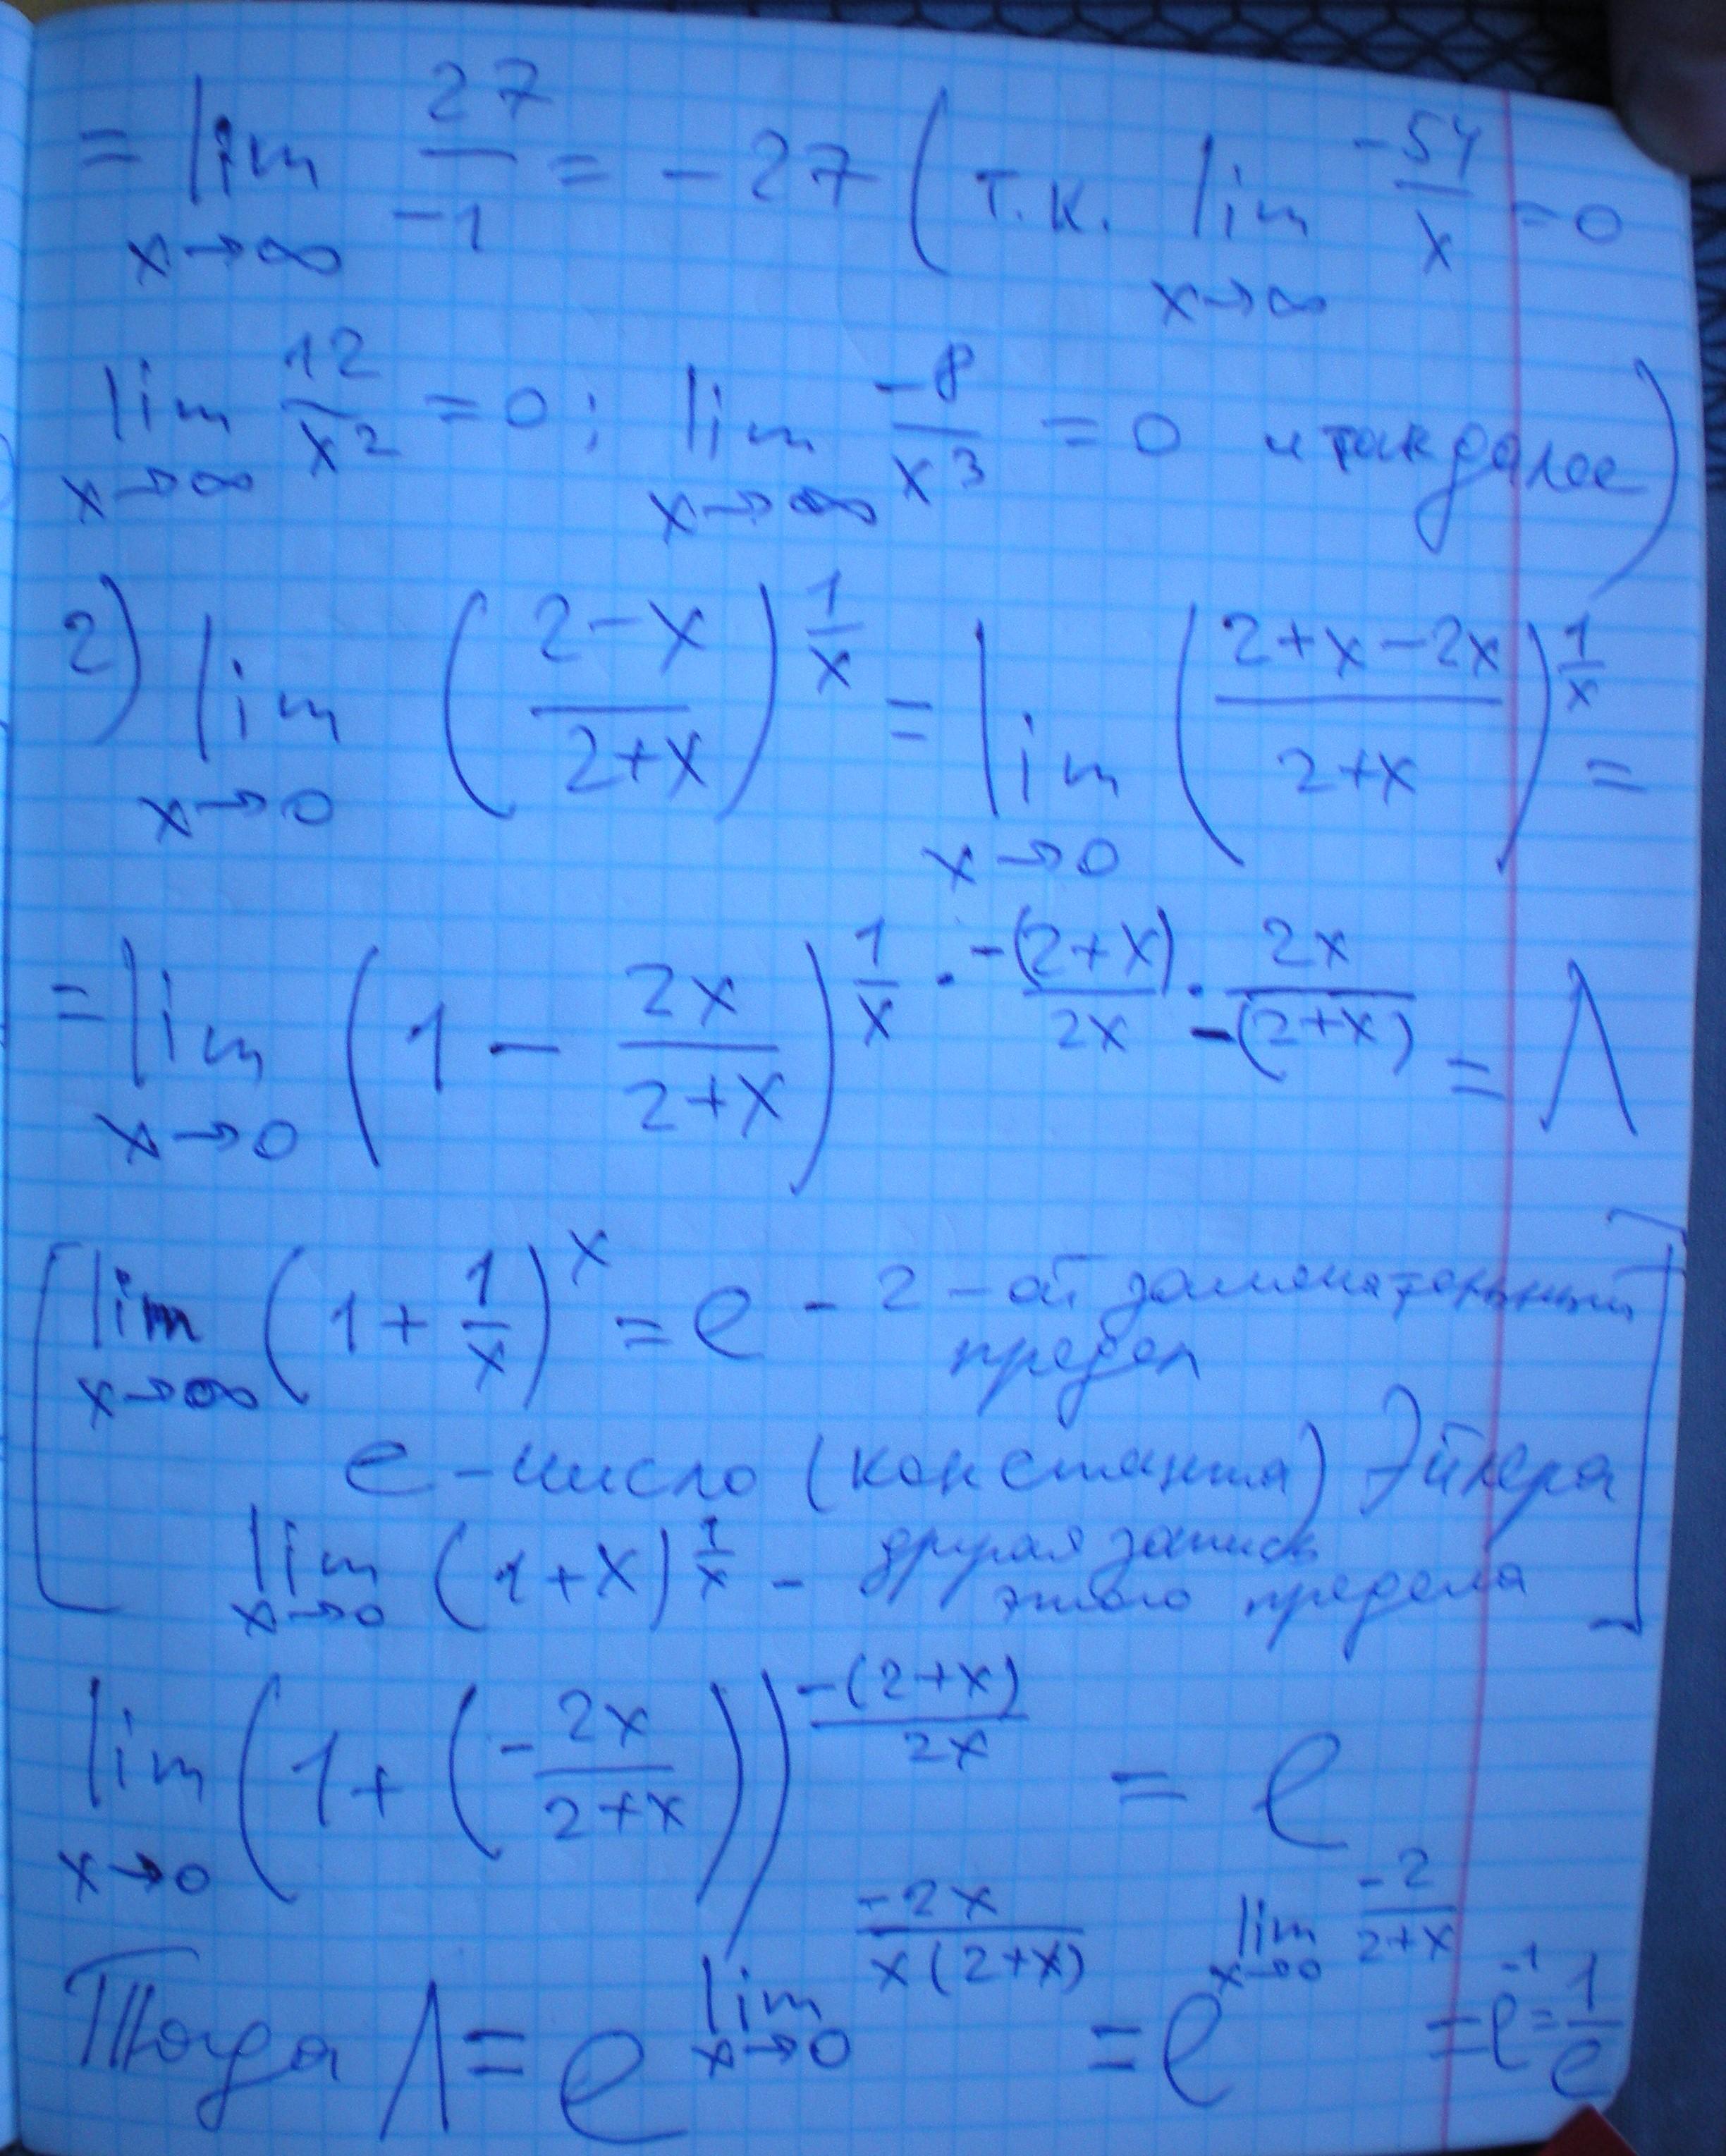 = lim x→∞ 27/−1 = −27 (т.к. lim x→∞ −54/x = 0
lim x→∞ 12/x² = 0; lim x→∞ −8/x³ = 0 и так далее)
2) lim x→0 ((2−x)/(2+x))^(1/x) = lim x→0 ((2+x−2x)/(2+x))^(1/x) =
= lim x→0 (1 − 2x/(2+x))^(1/x · −(2+x)/2x · 2x/−(2+x)) = Λ
[lim x→∞ (1 + 1/x)^x = e - 2-ой замечательный
предел
e - число (константа) Эйлера
lim x→0 (1+x)^(1/x) - другая запись
этого предела]
lim x→0 (1 + (−2x/(2+x)))^(−(2+x)/2x) = e
Тогда Λ = e^(lim x→0 −2x/(x(2+x))) = e^(lim x→0 −2/(2+x)) = e^−1 = 1/e